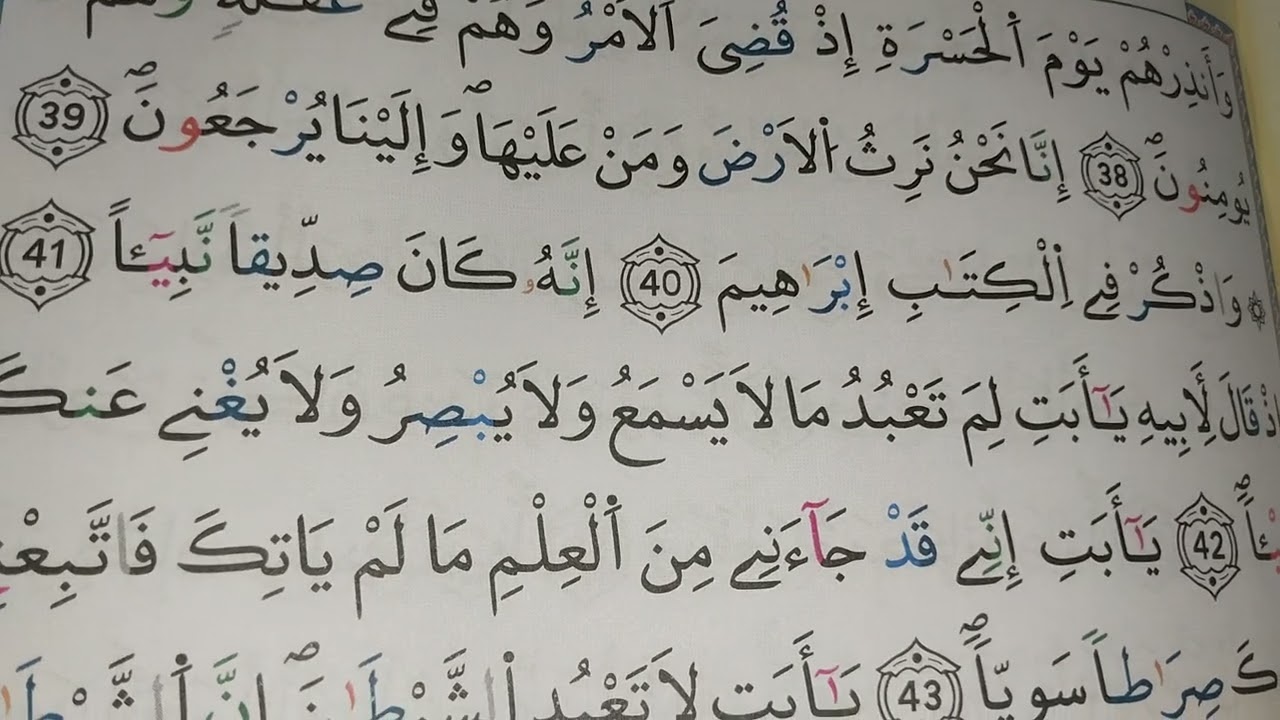 وَأَنذِرْهُمْ يَوْمَ اَ۬لْحَسْرَةِ إِذْ قُضِيَ اَ۬لَامْرُ وَهُمْ فِے غَفْلَةٖ وَهُمْ
يُومِنُونَۖ 38 إِنَّا نَحْنُ نَرِثُ اُ۬لَارْضَ وَمَنْ عَلَيْهَاۖ وَإِلَيْنَا يُرْجَعُونَۖ 39
۞ وَاذْكُرْ فِے اِ۬لْكِتَٰبِ إِبْرَٰهِيمَ 40 إِنَّهُۥ كَانَ صِدِّيقاٗ نَّبِيٓـٔاً 41
إِذْ قَالَ لِأَبِيهِ يَٰٓأَبَتِ لِمَ تَعْبُدُ مَا لَا يَسْمَعُ وَلَا يُبْصِرُ وَلَا يُغْنِے عَنكَ
42 يَٰٓأَبَتِ إِنِّے قَدْ جَآءَنِے مِنَ اَ۬لْعِلْمِ مَا لَمْ يَاتِكَ فَاتَّبِعْنِےٓ
صِرَٰطاٗ سَوِيّاٗۖ 43 يَٰٓأَبَتِ لَا تَعْبُدِ اِ۬لشَّيْطَٰنَۖ إِنَّ اَ۬لشَّيْطَٰنَ